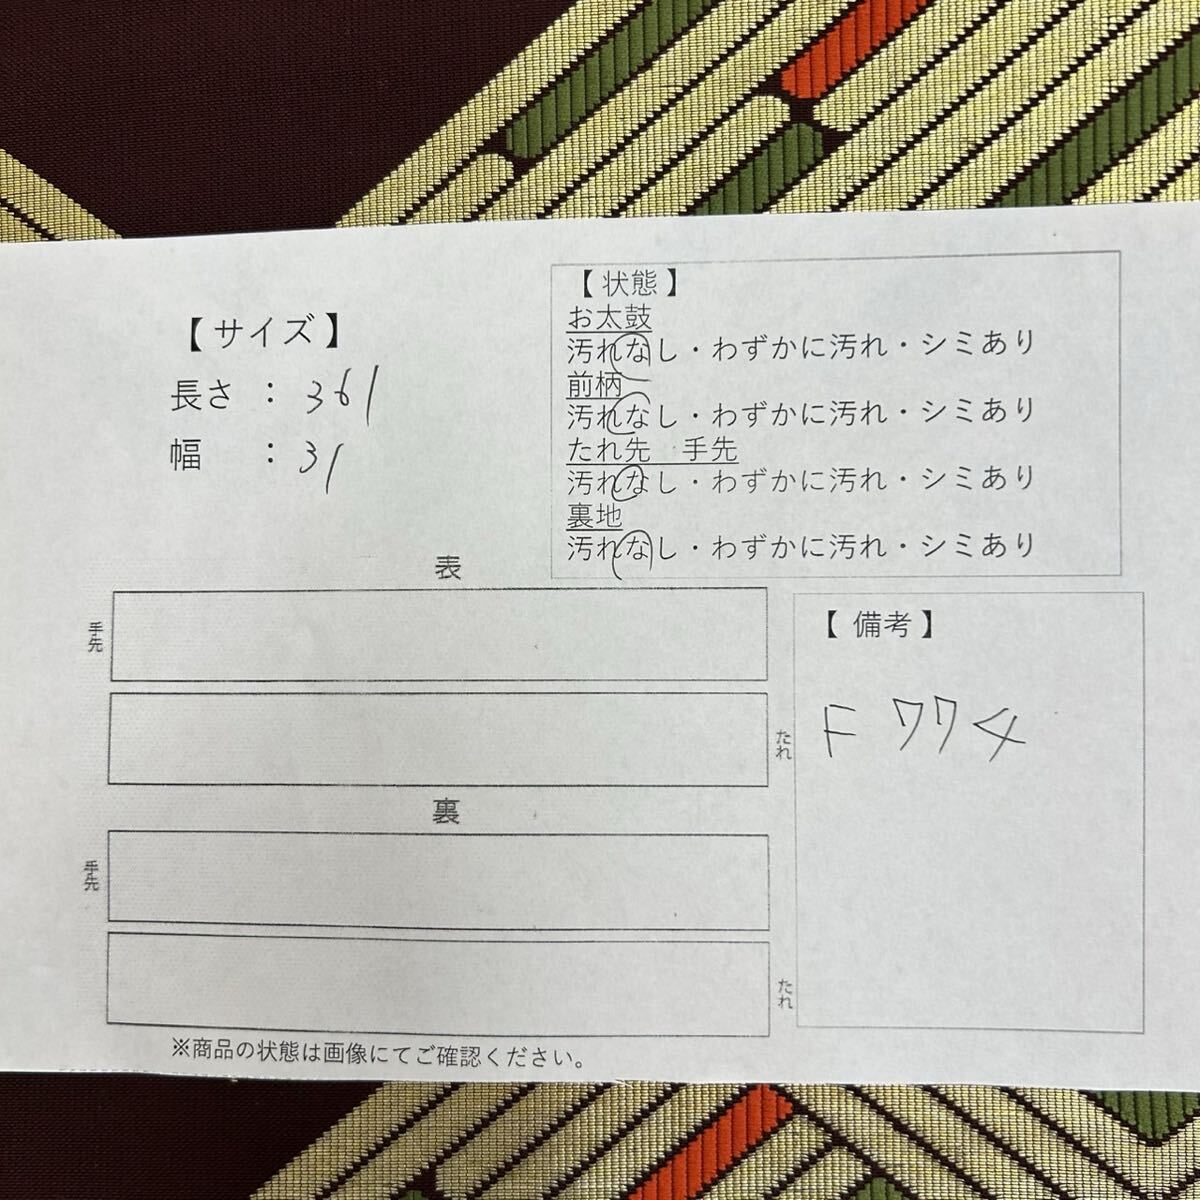 【 サイズ 】
長さ ： 361
幅 ： 31
【 状態 】
お太鼓
汚れなし・わずかに汚れ・シミあり
前柄
汚れなし・わずかに汚れ・シミあり
たれ先 手先
汚れなし・わずかに汚れ・シミあり
裏地
汚れなし・わずかに汚れ・シミあり
表
手先
たれ
裏
手先
たれ
【 備考 】
F 774
※商品の状態は画像にてご確認ください。